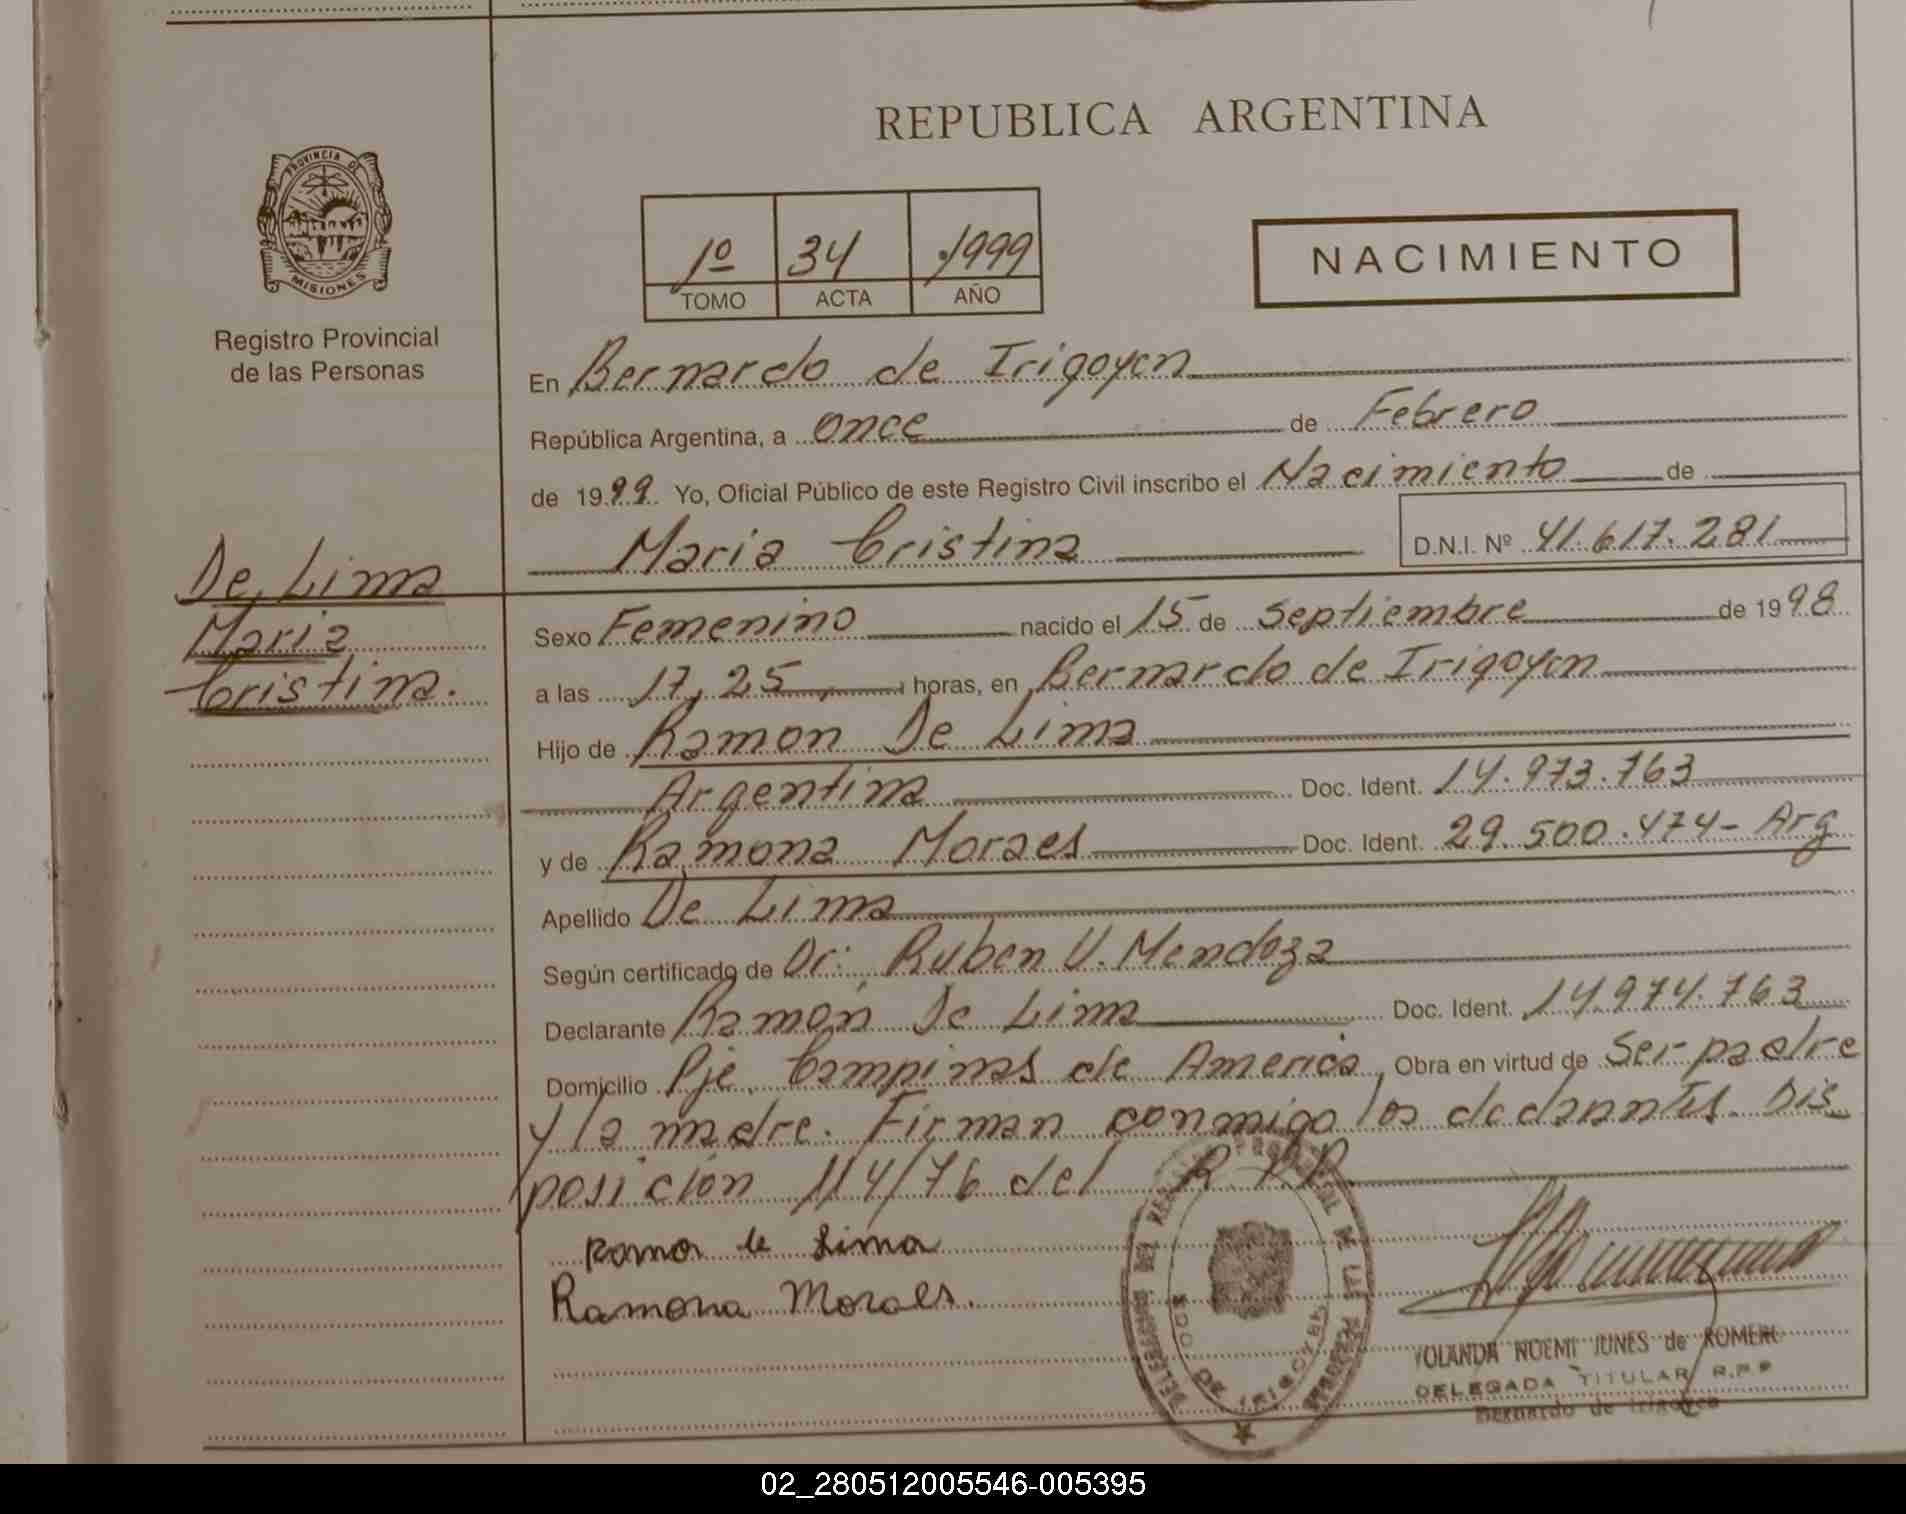 REPUBLICA ARGENTINA
PROVINCIA DE
MISIONES
Registro Provincial
de las Personas
1º 34 1999
TOMO ACTA AÑO
NACIMIENTO
En Bernardo de Irigoyen
República Argentina, a once de Febrero
de 1999 Yo, Oficial Público de este Registro Civil inscribo el Nacimiento de
Maria Cristina D.N.I. Nº 41.617.281
De Lima
Maria
Cristina.
Sexo Femenino nacido el 15 de Septiembre de 1998
a las 17,25 horas, en Bernardo de Irigoyen
Hijo de Ramon De Lima
Argentina Doc. Ident. 14.973.763
y de Ramona Moraes Doc. Ident. 29.500.474- Arg
Apellido De Lima
Según certificado de Dr: Ruben V. Mendoza
Declarante Ramón De Lima Doc. Ident. 14.974.763
Domicilio Pje. Campinas de America, Obra en virtud de Ser padre
y la madre. Firman conmigo los declarantes. Dis
posición 114/76 del R.P.P.
Ramon de Lima
Ramona Moraes.
DELEGACION DEL REGISTRO PROVINCIAL DE LAS PERSONAS
BDO. DE IRIGOYEN
YOLANDA NOEMI JUNES de ROMERO
DELEGADA TITULAR R.P.P
Bernardo de Irigoyen
02_280512005546-005395